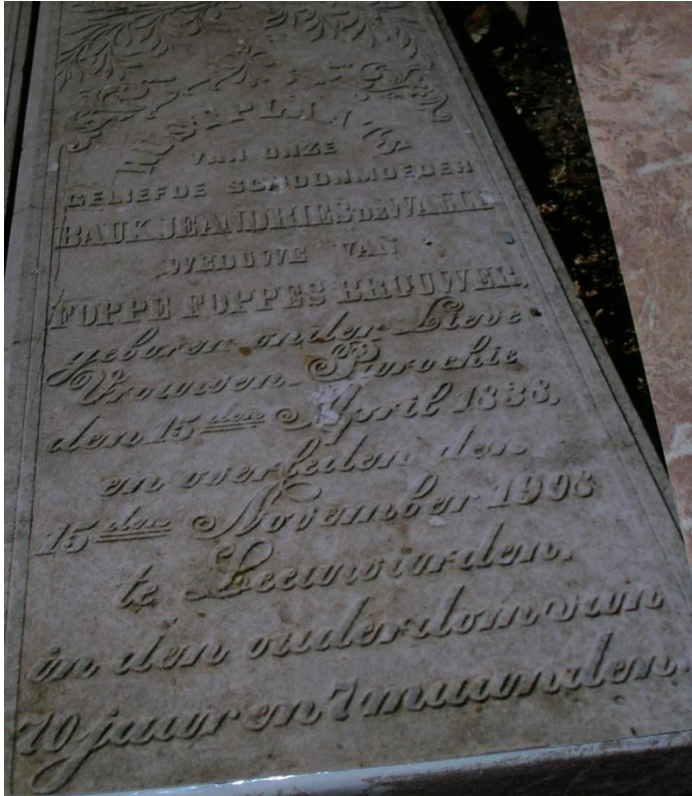 RUSTPLAATS
VAN ONZE
GELIEFDE SCHOONMOEDER
BAUKJE ANDRIES DE WALLE
WEDUWE VAN
FOPPE FOPPES BROUWER,
geboren onder Lieve
Vrouwen-Parochie
den 15den April 1833,
en overleden den
15den November 1903
te Leeuwarden,
in den ouderdom van
70 jaar en 7 maanden.